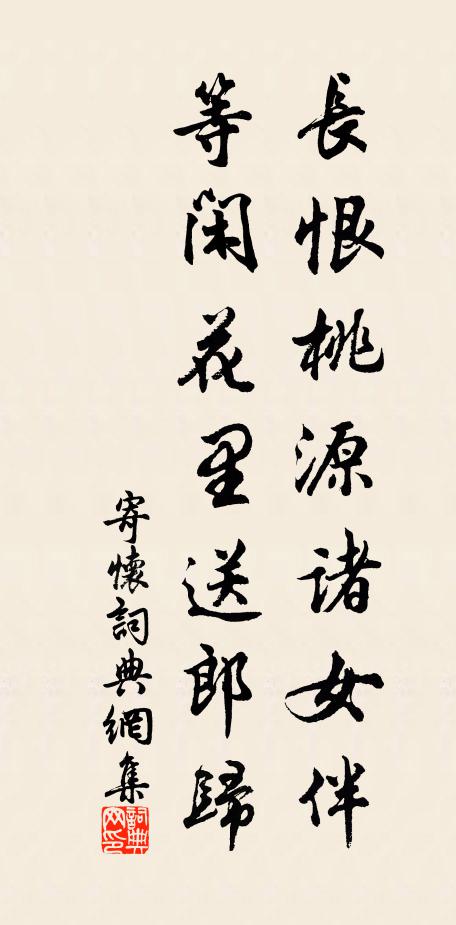 長恨桃源諸女伴
等閑花里送郎歸
寄懷詞典網集
詞典网印